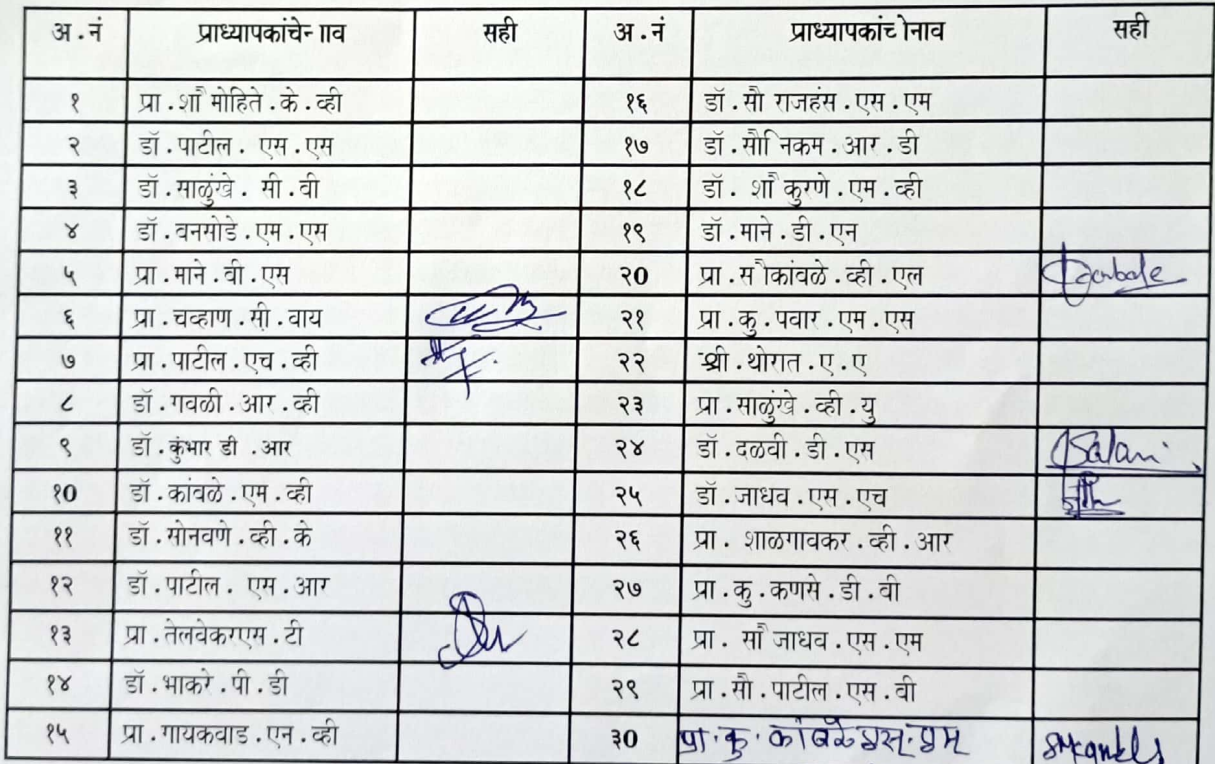 अ.नं प्राध्यापकांचेनाव सही अ.नं प्राध्यापकांचेनाव सही
१ प्रा.सौ मोहिते.के.व्ही १६ डॉ.सौ राजहंस.एस.एम
२ डॉ.पाटील. एस.एस १७ डॉ.सौ निकम.आर.डी
३ डॉ.साळुंखे. सी.बी १८ डॉ. सौ कुरणे.एम.व्ही
४ डॉ.वनमोडे.एम.एस १९ डॉ.माने.डी.एन
५ प्रा.माने.बी.एस २० प्रा.सौकांबळे.व्ही.एल
६ प्रा.चव्हाण.सी.वाय २१ प्रा.कु.पवार.एम.एस
७ प्रा.पाटील.एच.व्ही २२ श्री.थोरात.ए.ए
८ डॉ.गवळी.आर.व्ही २३ प्रा.साळुंखे.व्ही.यु
९ डॉ.कुंभार डी.आर २४ डॉ.दळवी.डी.एस
१० डॉ.कांबळे.एम.व्ही २५ डॉ.जाधव.एस.एच
११ डॉ.सोनवणे.व्ही.के २६ प्रा. शाळगावकर.व्ही.आर
१२ डॉ.पाटील. एस.आर २७ प्रा.कु.कणसे.डी.बी
१३ प्रा.तेलवेकरएस.टी २८ प्रा. सौ जाधव.एस.एम
१४ डॉ.भाकरे.पी.डी २९ प्रा.सौ.पाटील.एस.बी
१५ प्रा.गायकवाड.एन.व्ही ३० प्रा.कु.कांबळे एस.एम